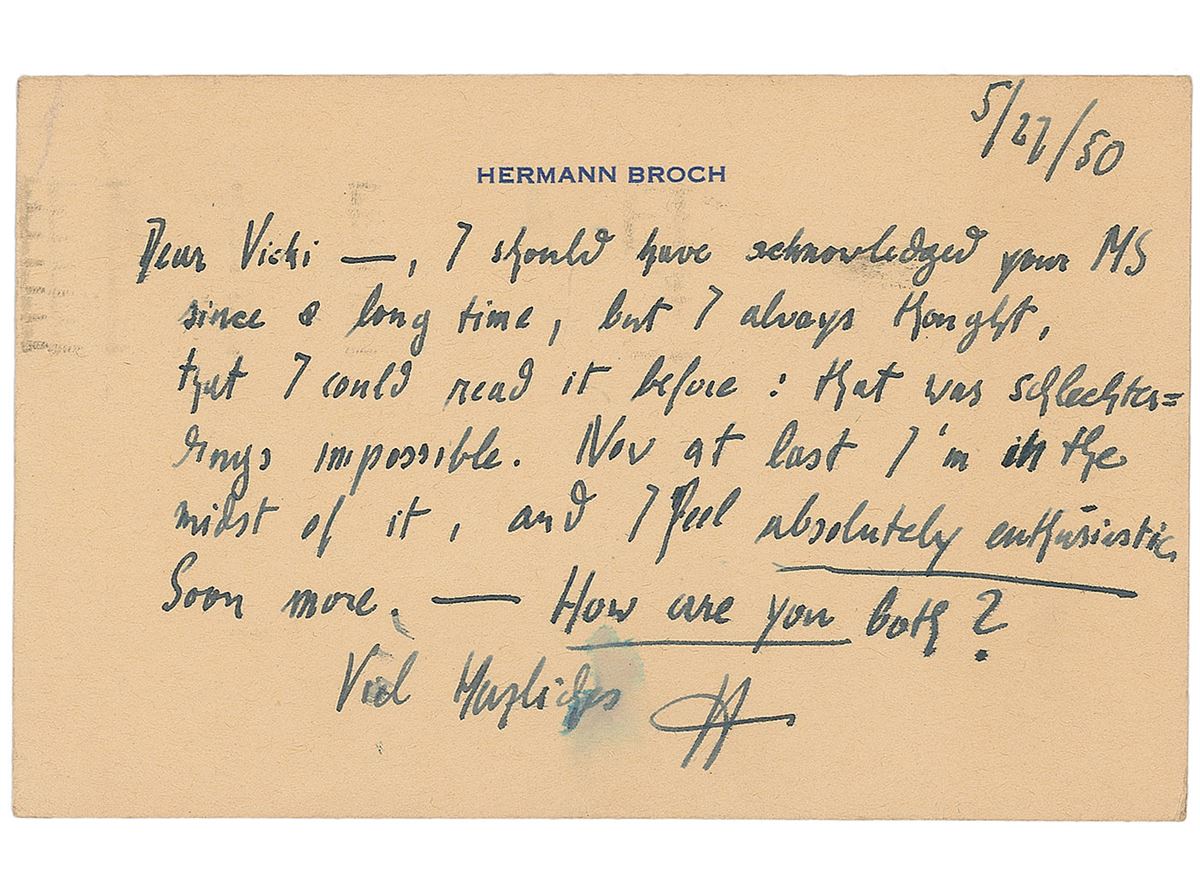 5/27/50
HERMANN BROCH
Dear Vicki —, I should have acknowledged your MS
since a long time, but I always thought,
that I could read it before : that was schlechter=
dings impossible. Now at last I'm in the
midst of it, and I feel absolutely enthusiastic.
Soon more. — How are you both?
Viel Herzliches H